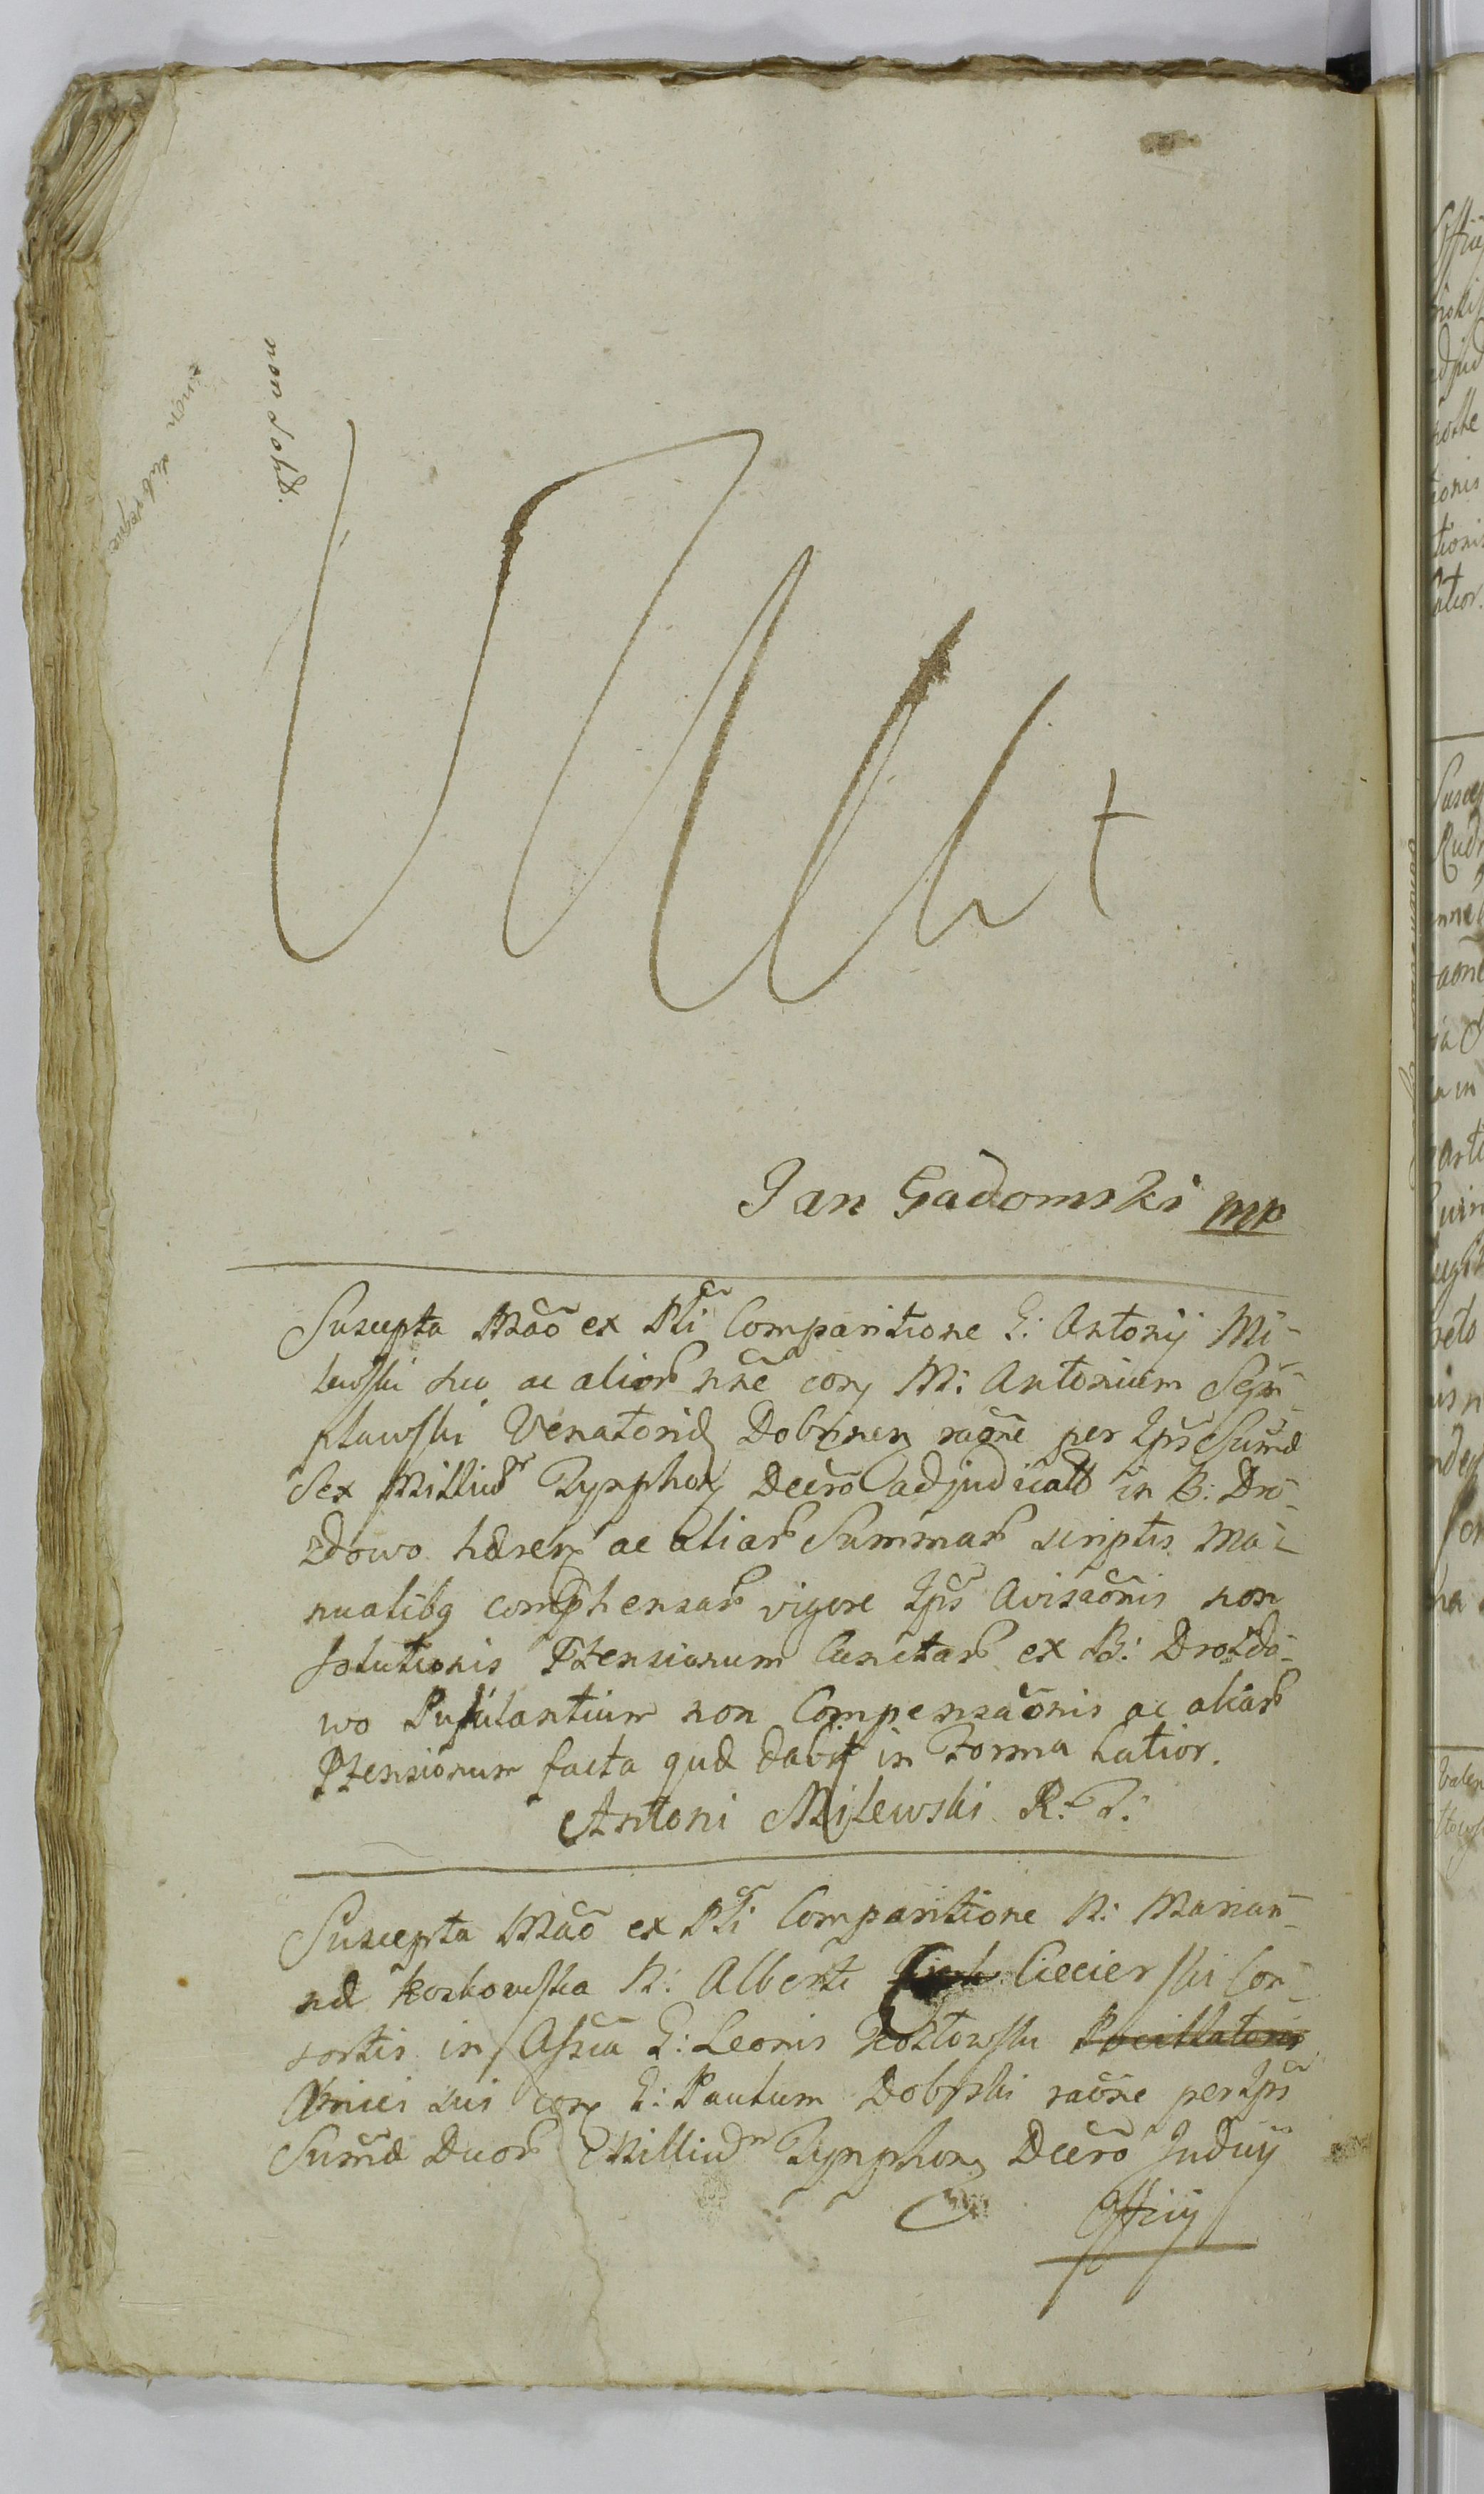 non solt.
Ut
Jan Gadomski mp
Suscepta Mão ex Pti Comparitione G: Antonij Mi-
lewski suo ac alior nñe con M: Antonium
Venatorid Dobrinen raõne per Ips Sumæ
Sex Milliu Tynphor Decro adjudicatæ in B: Dro-
zdowo hæren ac aliar Summar scriptis Ma-
nualibq comphensar vigore Ips Avisaõnis non
solutionis Ptensionum Cunctar ex B: Drozdo-
wo Pullulantium non Compensaõnis ac aliar
Ptensionum facta quæ dabit in Forma Latior.
Antoni Milewski R. T.
Suscepta Mão ex Pti Comparitione N: Marian-
næ Kozłowska N: Alberti Ciecierski Con-
sortis in Assia G: Leonis Kozłowski Pocillatoris
Amici sui con G: Paulum Dobrski raõne per Ips
Sumæ Duor Milliu Tynphor Decro Induy
Officij